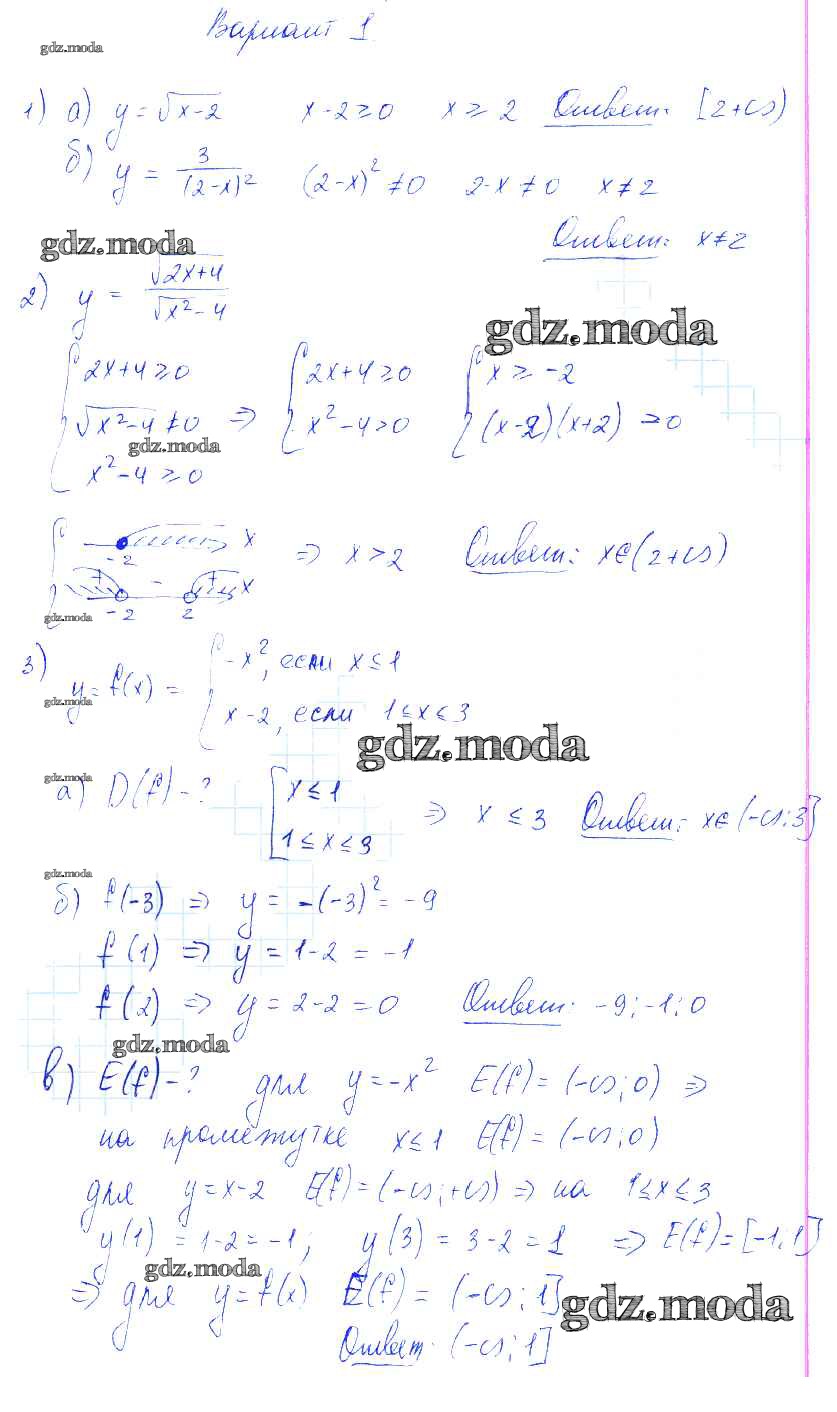 Вариант 1
gdz.moda
1) а) y = √x-2 x-2≥0 x≥2 Ответ: [2+∞)
б) y = 3/(2-x)² (2-x)²≠0 2-x≠0 x≠2
Ответ: x≠2
gdz.moda
2) y = √2x+4/√x²-4
gdz.moda
{ 2x+4≥0 { 2x+4≥0 { x≥-2
√x²-4≠0 ⇒ x²-4>0 (x-2)(x+2) >0
gdz.moda
x²-4≥0
-2 x ⇒ x>2 Ответ: x∈(2+∞)
+ - + x
-2 2
gdz.moda
3) y=f(x) = { -x², если x≤1
gdz.moda
x-2, если 1≤x≤3
gdz.moda
gdz.moda
а) D(f)-? [ x≤1
1≤x≤3 ⇒ x≤3 Ответ: x∈(-∞;3]
gdz.moda
б) f(-3) ⇒ y = -(-3)² = -9
f(1) ⇒ y = 1-2 = -1
f(2) ⇒ y = 2-2 = 0 Ответ: -9;-1;0
gdz.moda
в) E(f)-? для y=-x² E(f)=(-∞;0) ⇒
на промежутке x≤1 E(f)=(-∞;0)
для y=x-2 E(f)=(-∞;+∞) ⇒ на 1≤x≤3
y(1) = 1-2=-1; y(3) = 3-2=1 ⇒ E(f)=[-1;1]
gdz.moda
⇒ для y=f(x) E(f) = (-∞;1]
gdz.moda
Ответ: (-∞;1]